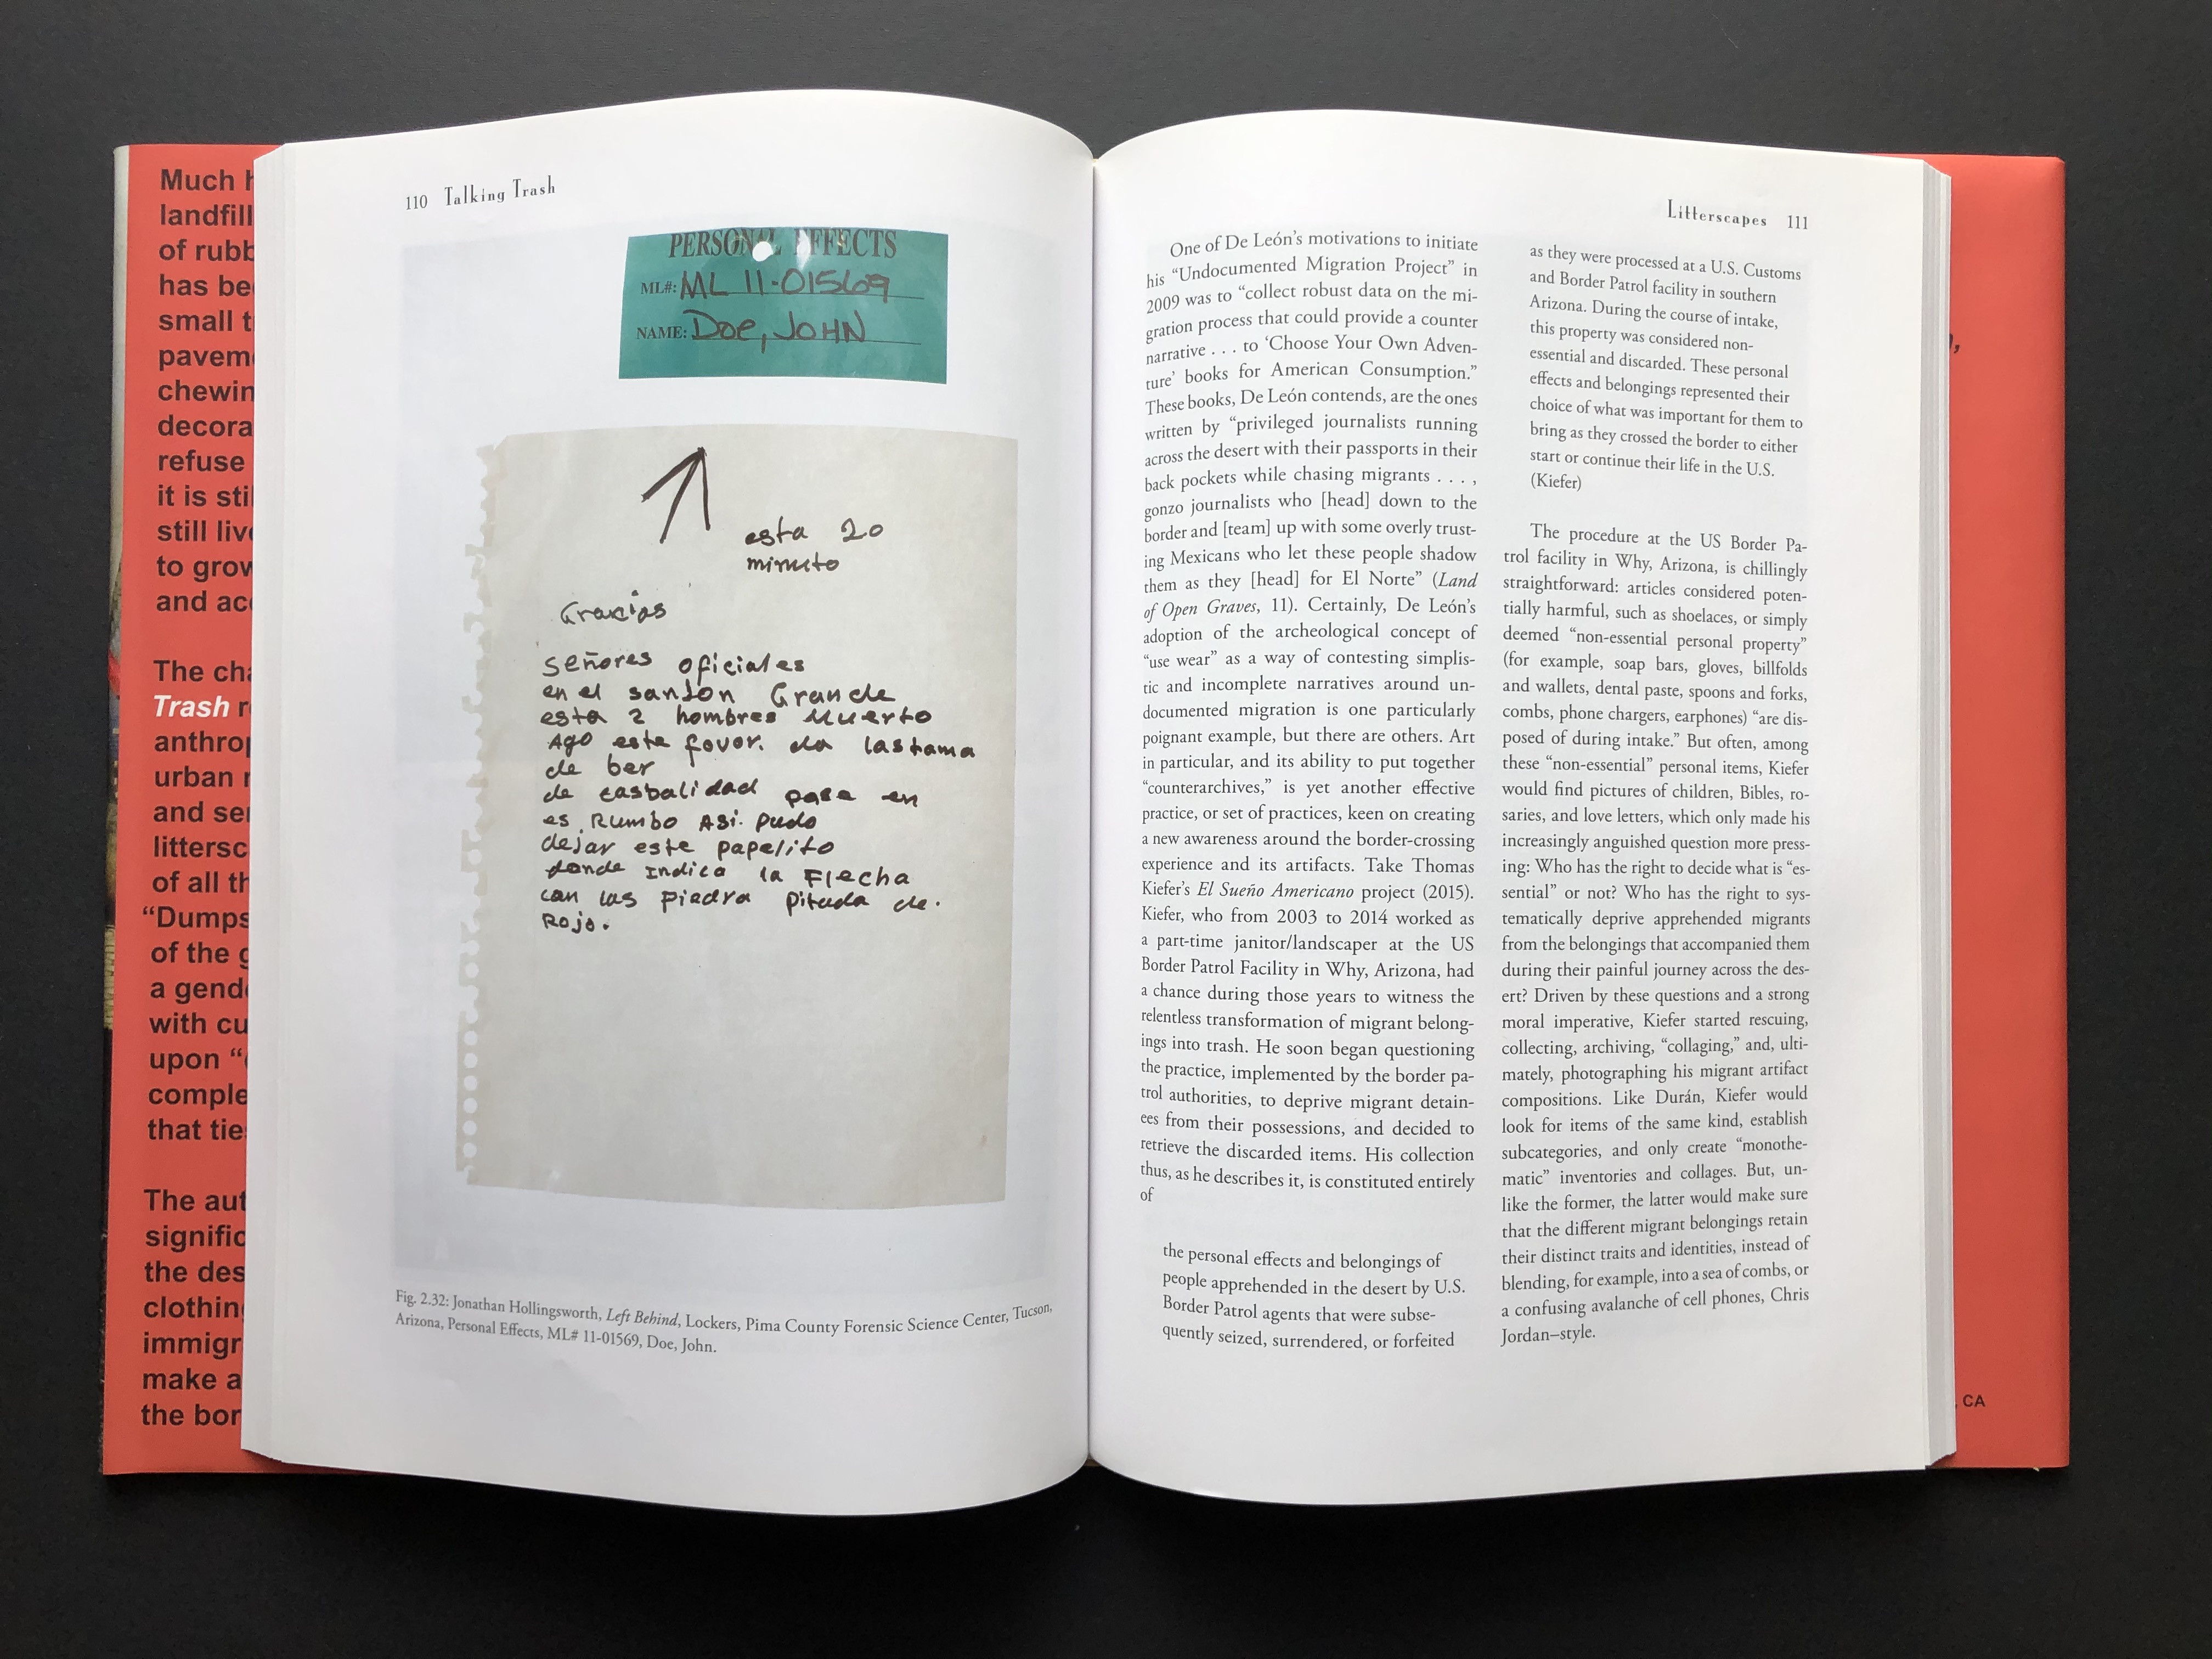 Much
landfill
of rubb
has be
small t
pavem
chewin
decora
refuse
it is sti
still liv
to grow
and acc
The cha
Trash r
anthrop
urban r
and ser
littersc
of all th
“Dumps
of the g
a gende
with cu
upon “
comple
that tie
The aut
signific
the des
clothin
immigr
make a
the bor
110 Talking Trash
PERSONAL EFFECTS
ML#: ML 11-01569
NAME: Doe, JOHN
esta 20
minuto
Gracias
Señores oficiales
en el sanjon Grande
esta 2 hombres Muerto
Ago este favor. da lastama
de ber
de casbalidad pase en
es Rumbo Asi. pudo
dejar este papelito
donde Indica la Flecha
can las piedra pitada de.
Rojo.
Fig. 2.32: Jonathan Hollingsworth, Left Behind, Lockers, Pima County Forensic Science Center, Tucson,
Arizona, Personal Effects, ML# 11-01569, Doe, John.
Litterscapes 111
One of De León’s motivations to initiate
his “Undocumented Migration Project” in
2009 was to “collect robust data on the mi-
gration process that could provide a counter
narrative . . . to ‘Choose Your Own Adven-
ture’ books for American Consumption.”
These books, De León contends, are the ones
written by “privileged journalists running
across the desert with their passports in their
back pockets while chasing migrants . . . ,
gonzo journalists who [head] down to the
border and [team] up with some overly trust-
ing Mexicans who let these people shadow
them as they [head] for El Norte” (Land
of Open Graves, 11). Certainly, De León’s
adoption of the archeological concept of
“use wear” as a way of contesting simplis-
tic and incomplete narratives around un-
documented migration is one particularly
poignant example, but there are others. Art
in particular, and its ability to put together
“counterarchives,” is yet another effective
practice, or set of practices, keen on creating
a new awareness around the border-crossing
experience and its artifacts. Take Thomas
Kiefer’s El Sueño Americano project (2015).
Kiefer, who from 2003 to 2014 worked as
a part-time janitor/landscaper at the US
Border Patrol Facility in Why, Arizona, had
a chance during those years to witness the
relentless transformation of migrant belong-
ings into trash. He soon began questioning
the practice, implemented by the border pa-
trol authorities, to deprive migrant detain-
ees from their possessions, and decided to
retrieve the discarded items. His collection
thus, as he describes it, is constituted entirely
of
the personal effects and belongings of
people apprehended in the desert by U.S.
Border Patrol agents that were subse-
quently seized, surrendered, or forfeited
as they were processed at a U.S. Customs
and Border Patrol facility in southern
Arizona. During the course of intake,
this property was considered non-
essential and discarded. These personal
effects and belongings represented their
choice of what was important for them to
bring as they crossed the border to either
start or continue their life in the U.S.
(Kiefer)
The procedure at the US Border Pa-
trol facility in Why, Arizona, is chillingly
straightforward: articles considered poten-
tially harmful, such as shoelaces, or simply
deemed “non-essential personal property”
(for example, soap bars, gloves, billfolds
and wallets, dental paste, spoons and forks,
combs, phone chargers, earphones) “are dis-
posed of during intake.” But often, among
these “non-essential” personal items, Kiefer
would find pictures of children, Bibles, ro-
saries, and love letters, which only made his
increasingly anguished question more press-
ing: Who has the right to decide what is “es-
sential” or not? Who has the right to sys-
tematically deprive apprehended migrants
from the belongings that accompanied them
during their painful journey across the des-
ert? Driven by these questions and a strong
moral imperative, Kiefer started rescuing,
collecting, archiving, “collaging,” and, ulti-
mately, photographing his migrant artifact
compositions. Like Durán, Kiefer would
look for items of the same kind, establish
subcategories, and only create “monothe-
matic” inventories and collages. But, un-
like the former, the latter would make sure
that the different migrant belongings retain
their distinct traits and identities, instead of
blending, for example, into a sea of combs, or
a confusing avalanche of cell phones, Chris
Jordan–style.
CA